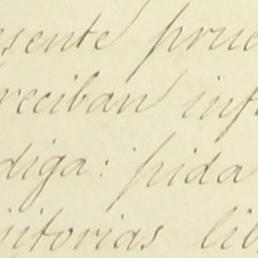 esente prue
reciban inf
diga: pida
jitorias lib